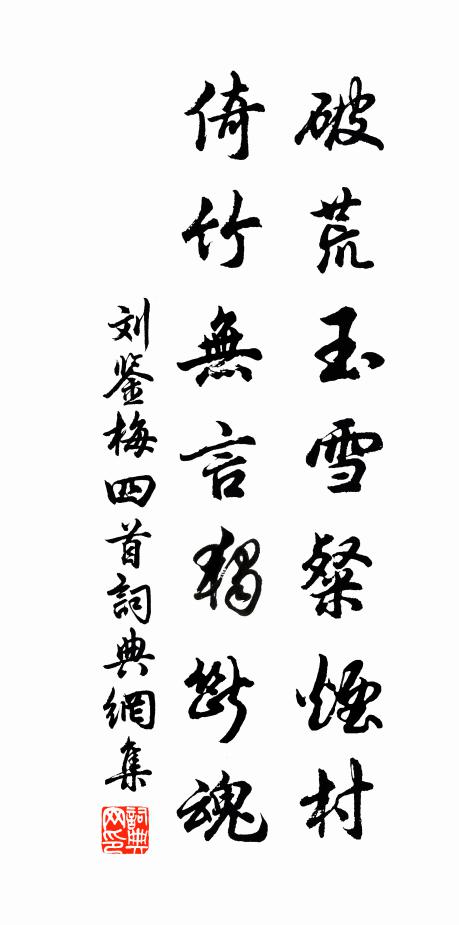 破荒玉雪粲煙村
倚竹無言獨斷魂
刘鉴梅四首詞典網集
詞典网印